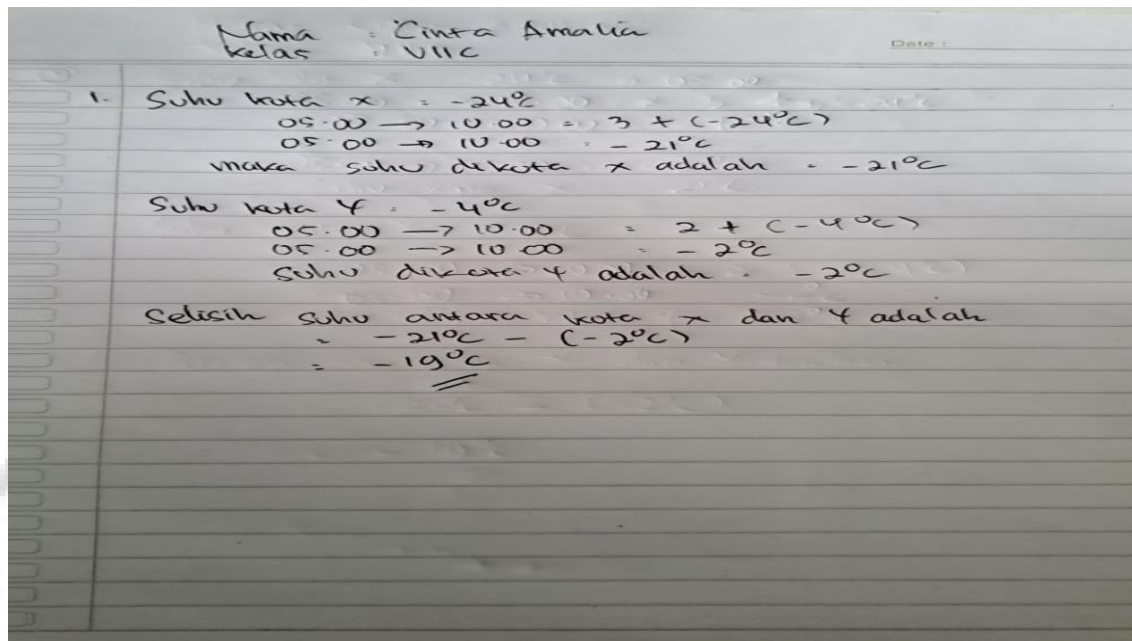 Nama : Cinta Amalia
Kelas : VIIC
Date :
1. Suhu kota x = -24°C
05.00 → 10.00 = 3 + (-24°C)
05.00 → 10.00 = -21°C
maka suhu dikota x adalah = -21°C
Suhu kota Y = -4°C
05.00 → 10.00 = 2 + (-4°C)
05.00 → 10.00 = -2°C
Suhu dikota Y adalah = -2°C
Selisih suhu antara kota x dan Y adalah
= -21°C - (-2°C)
= -19°C